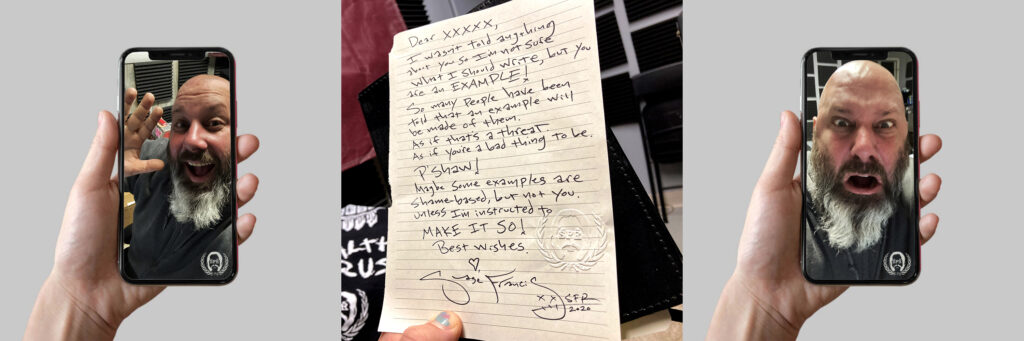 Dear XXXXX,
I wasn't told anything
about you so I'm not sure
what I should write, but you
are an EXAMPLE!
So many people have been
told that an example will
be made of them.
As if that's a threat.
As if you're a bad thing to be.
P'SHAW!
Maybe some examples are
shame-based, but not you.
unless I'm instructed to
MAKE IT SO!
Best wishes.
Sage Francis
SFR
2020